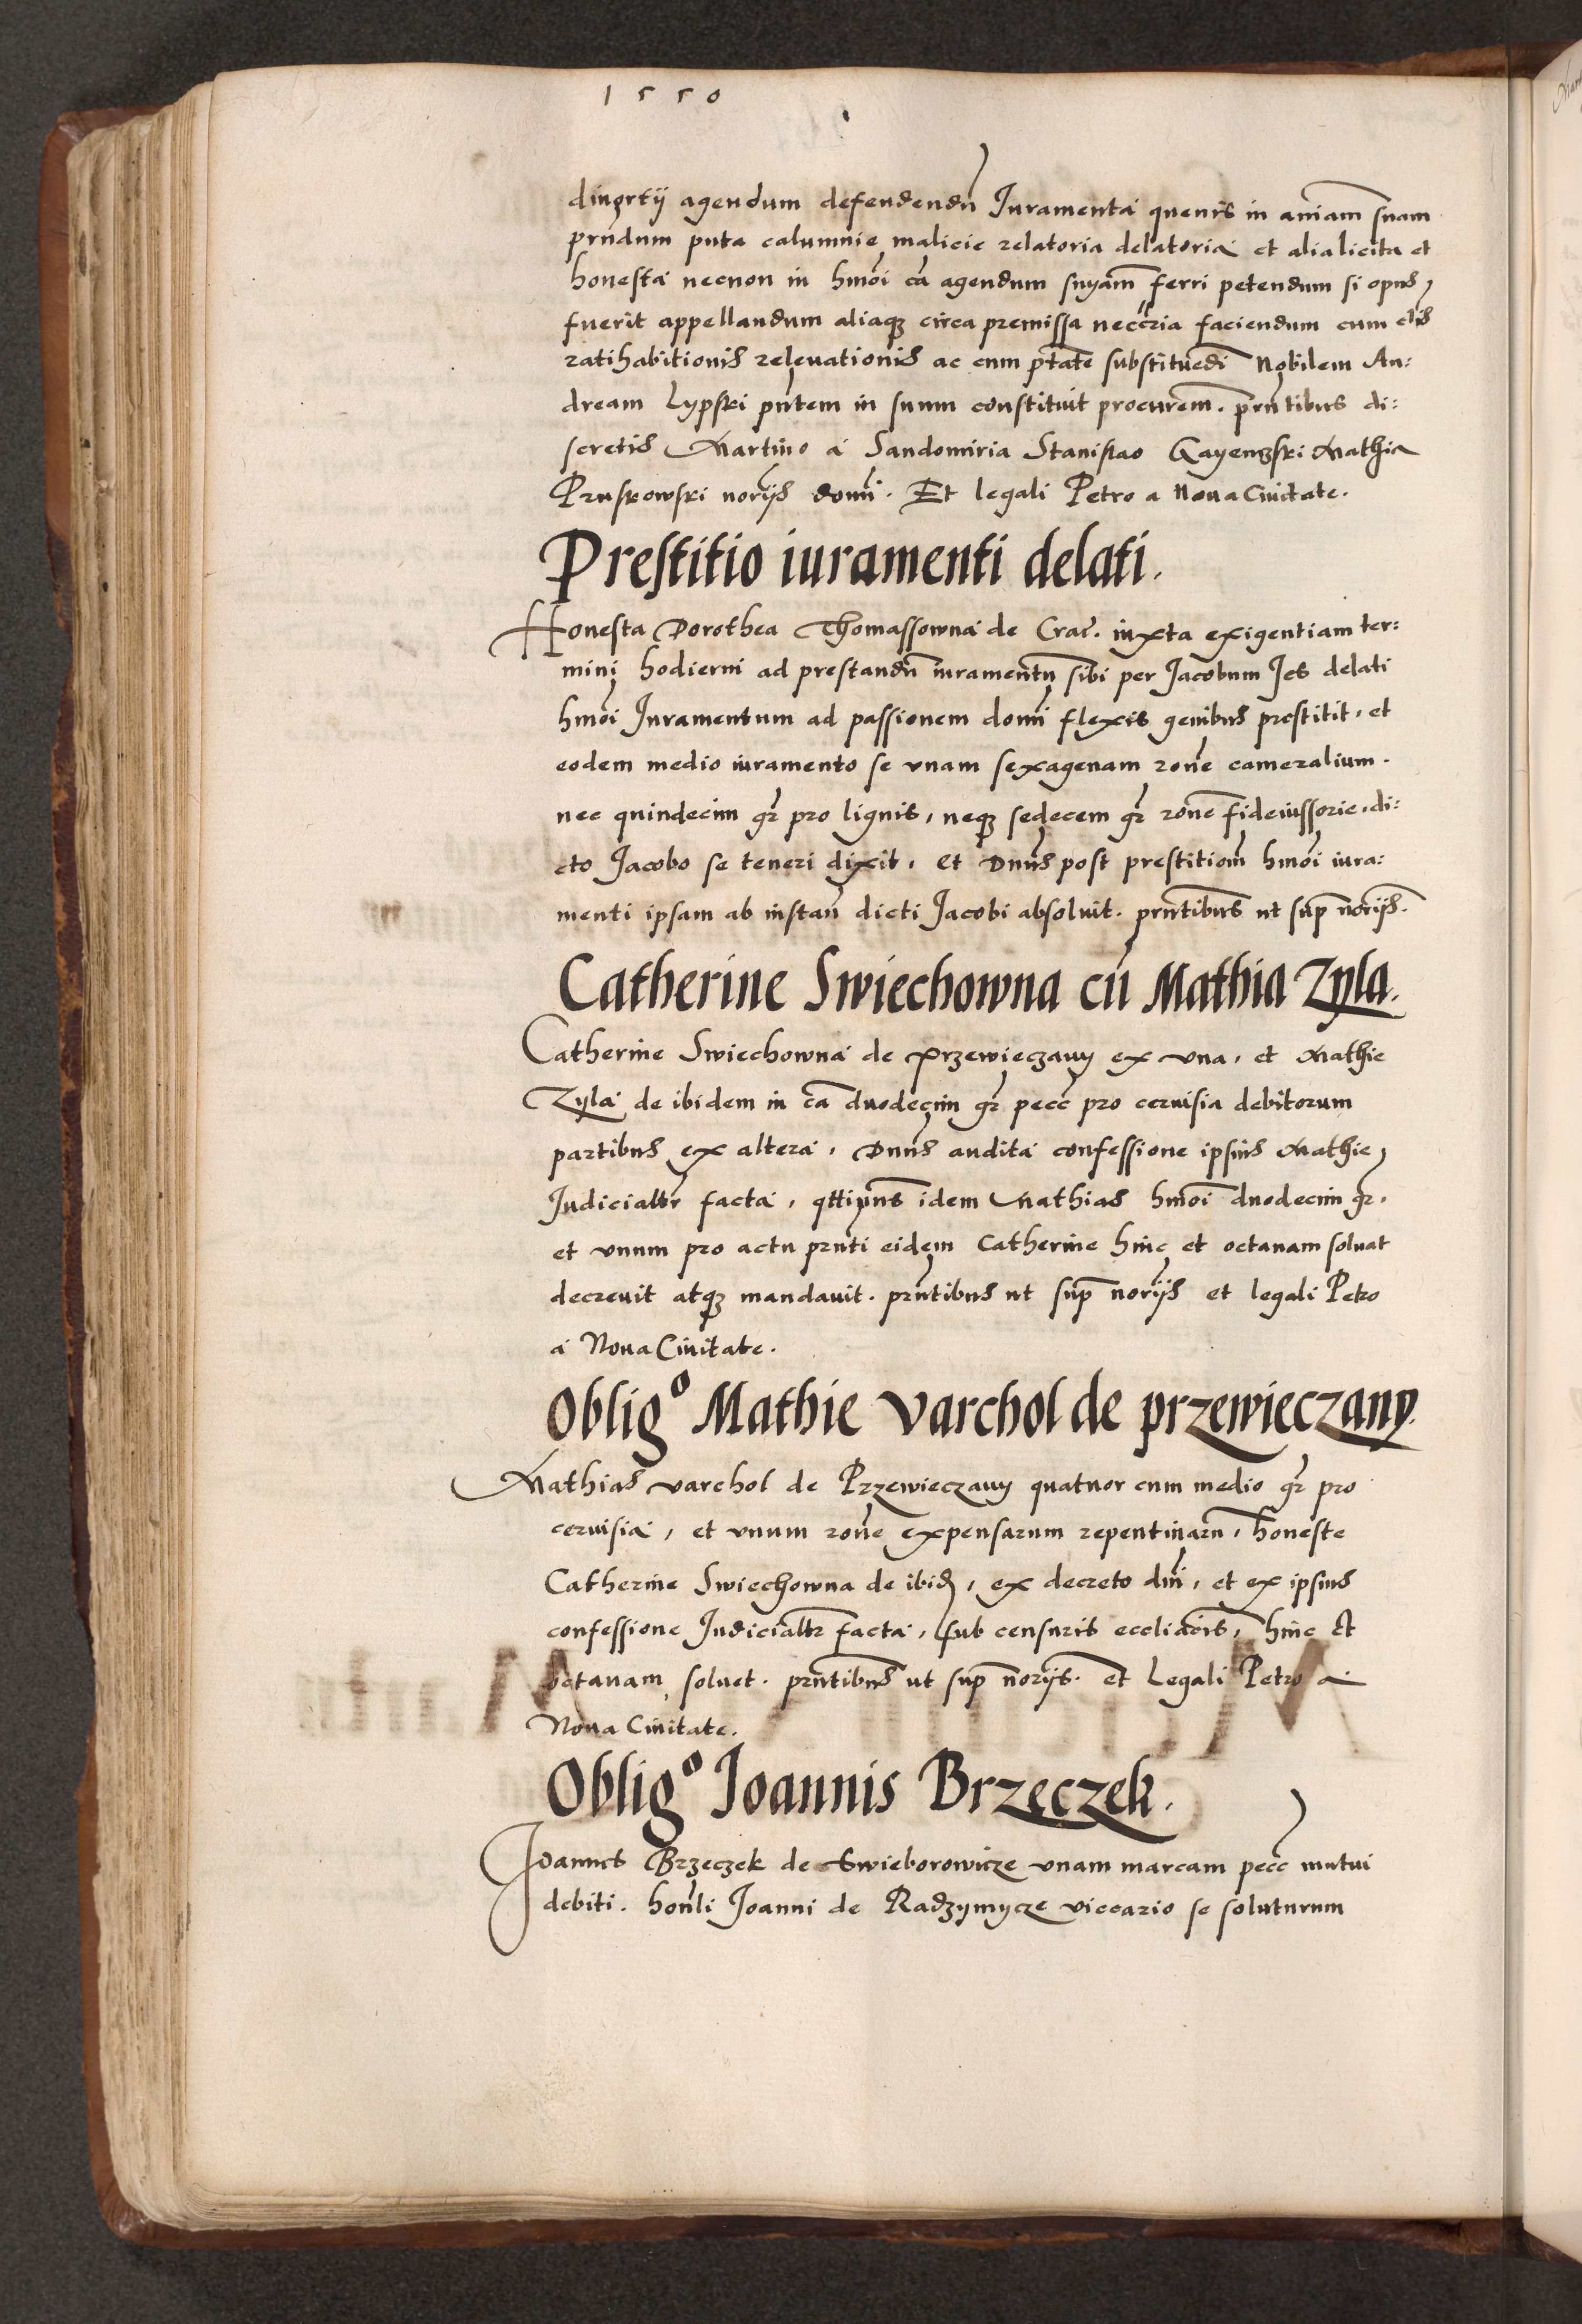 1550
divortij agendum defendendũ Iuramenta quevis in aniam̃ suam
prñdum puta calumnie malicie relatoria delatoria et alia licita et
honesta necnon in hmõi cã agendum snyam̃ ferri petendum si opus
fuerit appellandum aliaqꝫ circa premissa neccria faciendum cum clis
ratihabitionis relevationis ac cum ptãte substituẽdi Nobilem An:
dream Lypski pñtem in suum constituit procurem̃. prñtibus di:
scretis Martino a Sandomiria Stanislao Gayewski Mathia
Pruskowski norijs domĩ. Et legali Petro a Nova Civitate.
Prestitio iuramenti delati.
Honesta Dorothea Thomassowna de Crac̃. iuxta exigentiam ter:
mini hodierni ad prestandũ iuramentũ sibi per Jacobum Jes delati
hmõi Iuramentum ad passionem domĩ flexis genibus prestitit, et
eodem medio iuramento se unam sexagenam rone cameralium.
nec quindecim gr̃ pro lignis, neqꝫ sedecem gr̃ ronẽ fideiussorie, di:
cto Jacobo se teneri dixit, et Dnũs post prestitiom̃ hmõi iura:
menti ipsam ab instañ dicti Jacobi absolvit. prñtibus ut sup̃ norijs.
Catherine Swiechowna cũ Mathia Zyla.
Catherine Swiechowna de Przewieczany ex una, et Mathie
Zyla de ibidem in cã duodecim gr̃ pecc̃ pro cervisia debitorum
partibus ex altera, Dnũs audita confessione ipsius Mathie
Judicialtr̃ facta, qttipñs idem Mathias hmõi duodecim gr̃.
et unum pro actu prñti eidem Catherine hinc et octavam solvat
decrevit atqꝫ mandavit. prñtibus ut sup̃ norijs et legali Petro
a Nova Civitate.
Oblig° Mathie Varchol de przewieczany.
Mathias varchol de Przewieczany quatuor cum medio gr̃ pro
cervisia, et unum rone expensarum repentinarũ, honeste
Catherine Swiechowna de ibid̃, ex decreto dnĩ, et ex ipsius
confessione Judicialtr̃ facta, sub censuris eccliãcis, hinc et
octavam solvet. prñtibus ut sup̃ norijs. et Legali Petro a
Nova Civitate.
Oblig° Joannis Brzęczek.
Joannes Brzęczek de Swieborowicze unam marcam pecc̃ mutui
debiti. honli Joanni de Radzymycze viccario se soluturum